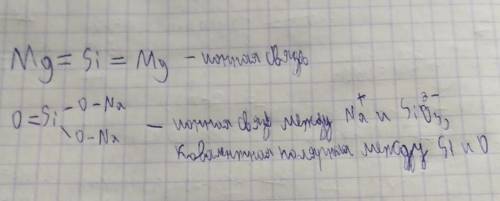 Mg = Si = Mg – ионная связь
O = Si – O – Na
– O – Na – ионная связь между Na⁺ и SiO₃²⁻,
Ковалентная полярная между Si и O